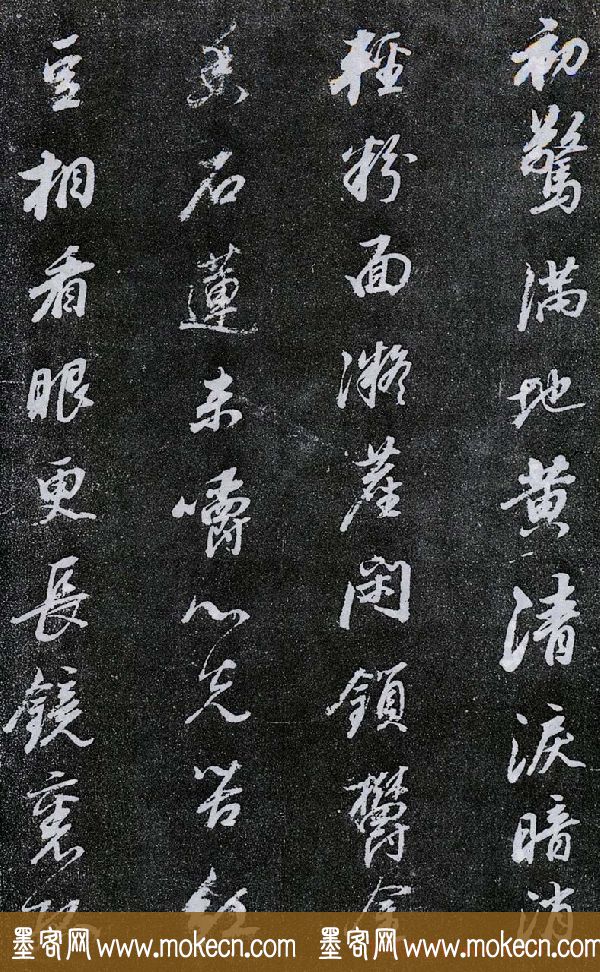 初驚滿地黃清淚暗消
輕粉面凝塵閑鎖鬱金
裳石蓮未嚼心先苦紅
豆相看眼更長鏡裏
墨客网 www.mokecn.com 墨客网 www.mokecn.com